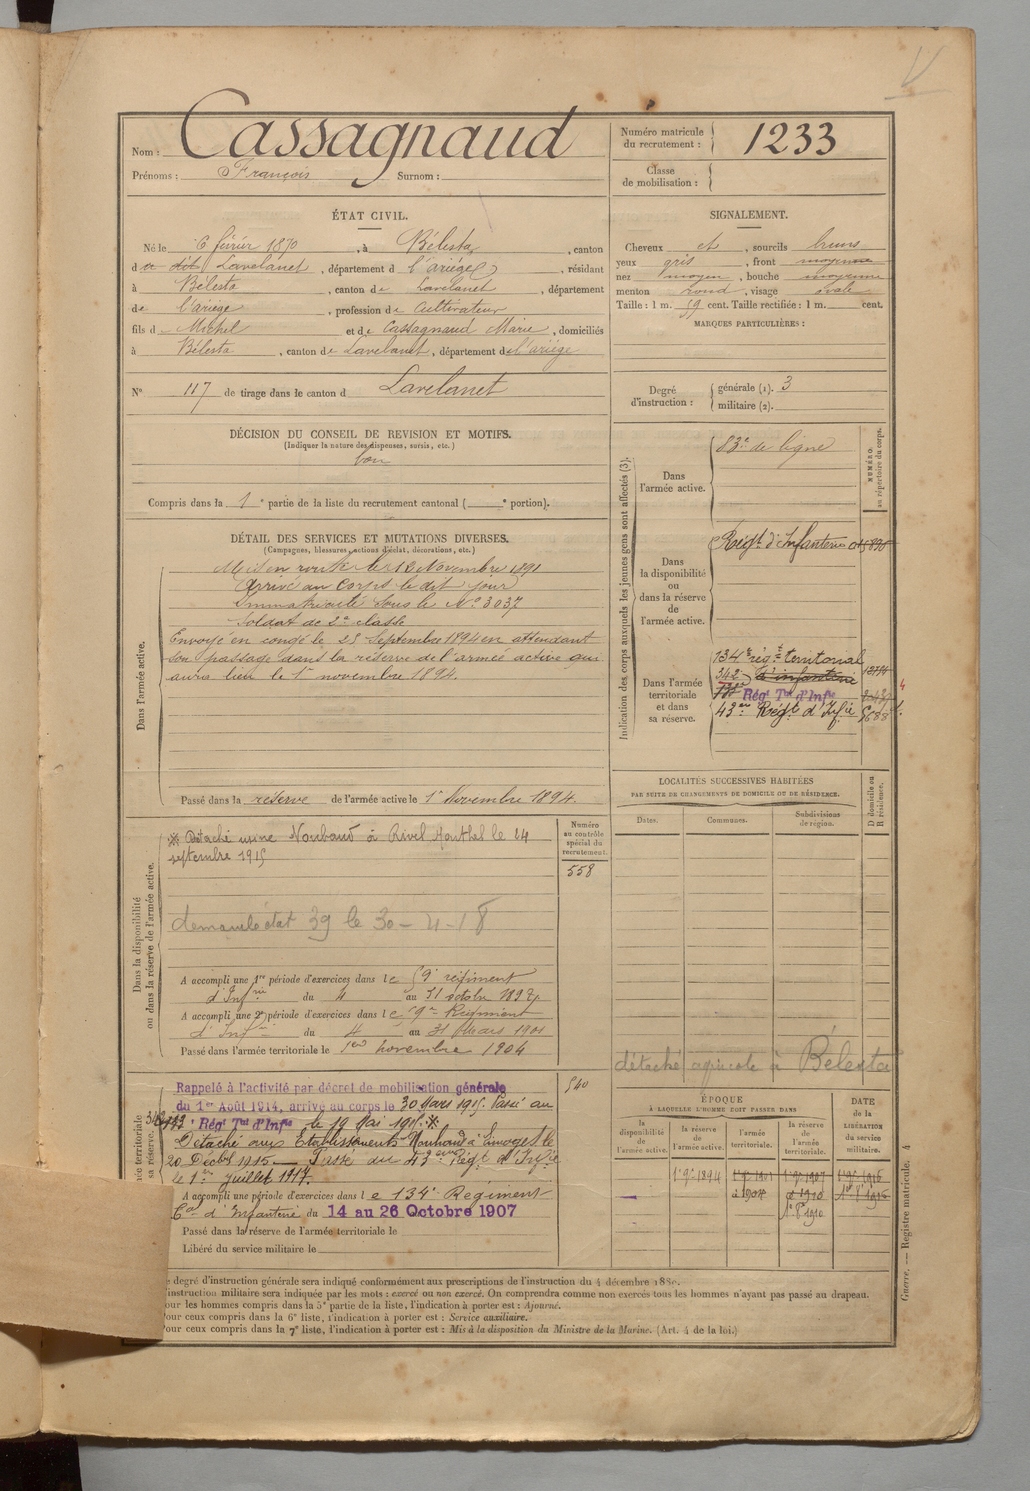 Nom : Cassagnaud
Prénoms : François Surnom :
Numéro matricule du recrutement : 1233
Classe de mobilisation :
ÉTAT CIVIL.
Né le 6 février 1870, à Bélesta, canton
d dit Lavelanet, département d l'ariège, résidant
à Bélesta, canton de Lavelanet, département
de l'ariège, profession de Cultivateur
fils d Michel et de Cassagnaud Marie, domiciliés
à Bélesta, canton de Lavelanet, département de l'ariège
N° 117 de tirage dans le canton d Lavelanet
SIGNALEMENT.
Cheveux et, sourcils bruns
yeux gris, front moyenne
nez moyen, bouche moyenne
menton rond, visage ovale
Taille : 1 m. 59 cent. Taille rectifiée : 1 m. cent.
MARQUES PARTICULIÈRES :
Degré d'instruction : générale (1). 3
militaire (2).
DÉCISION DU CONSEIL DE REVISION ET MOTIFS.
(Indiquer la nature des dispenses, sursis, etc.)
bon
Compris dans la 1e partie de la liste du recrutement cantonal ( e portion).
DÉTAIL DES SERVICES ET MUTATIONS DIVERSES.
(Campagnes, blessures, actions d'éclat, décorations, etc.)
Dans l'armée active.
Mis en route le 12 Novembre 1891
Arrivé au Corps le dit jour
Immatriculé sous le N° 3037
Soldat de 2e classe
Envoyé en congé le 23 Septembre 1894 en attendant
son passage dans la réserve de l'armée active qui
aura lieu le 1er novembre 1894.
Passé dans la réserve de l'armée active le 1er Novembre 1894.
Indication des corps auxquels les jeunes gens sont affectés (3).
NUMÉRO au répertoire du corps.
Dans l'armée active.
83e de ligne
Dans la disponibilité ou dans la réserve de l'armée active.
Régt d'Infanterie
Dans l'armée territoriale et dans sa réserve.
134e régt territorial
342 d'infanterie
Régt Tal d'Infie
43e Régt d'Infie
LOCALITÉS SUCCESSIVES HABITÉES
PAR SUITE DE CHANGEMENTS DE DOMICILE OU DE RÉSIDENCE.
Dates. Communes. Subdivisions de région. D domicile ou R résidence.
détaché agricole à Bélesta
Dans la disponibilité ou dans la réserve de l'armée active.
Numéro au contrôle spécial du recrutement.
558
Détaché usine à Rivel le 24
septembre 1915
demande état 39 le 30-4-18
A accompli une 1re période d'exercices dans le 59e régiment
d'Infrie du 4 au 31 octobre
A accompli une 2e période d'exercices dans le 59e Régiment
d'Inf du 4 au 31 Mars 1901
Passé dans l'armée territoriale le 1er novembre 1904
540
Rappelé à l'activité par décret de mobilisation générale
du 1er Août 1914, arrivé au corps le 30 Mars 1915. Passé au
Régt Tal d'Infie le 19 Mai 1915
Détaché aux Etablissements à Limoges le
20 Décbre 1915 — Passé au 43e Régt d'Infie
le 1er juillet 1917.
A accompli une période d'exercices dans le 134e Régiment
d'Infanterie du 14 au 26 Octobre 1907
Passé dans la réserve de l'armée territoriale le
Libéré du service militaire le
ÉPOQUE
À LAQUELLE L'HOMME DOIT PASSER DANS
la disponibilité de l'armée active. la réserve de l'armée active. l'armée territoriale. la réserve de l'armée territoriale.
DATE de la LIBÉRATION du service militaire.
Guerre. — Registre matricule. 4
degré d'instruction générale sera indiqué conformément aux prescriptions de l'instruction du 4 décembre 1889.
instruction militaire sera indiquée par les mots : exercé ou non exercé. On comprendra comme non exercés tous les hommes n'ayant pas passé au drapeau.
our les hommes compris dans la 5e partie de la liste, l'indication à porter est : Ajourné.
our ceux compris dans la 6e liste, l'indication à porter est : Service auxiliaire.
our ceux compris dans la 7e liste, l'indication à porter est : Mis à la disposition du Ministre de la Marine. (Art. 4 de la loi.)